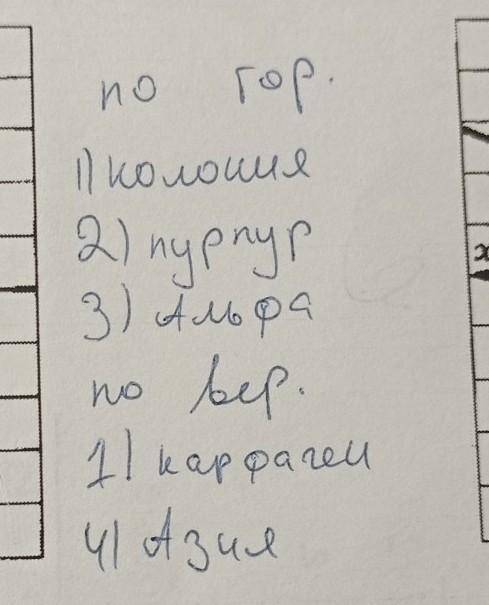 по гор.
1) колония
2) пурпур
3) Альфа
по вер.
1) карфаген
4) Азия